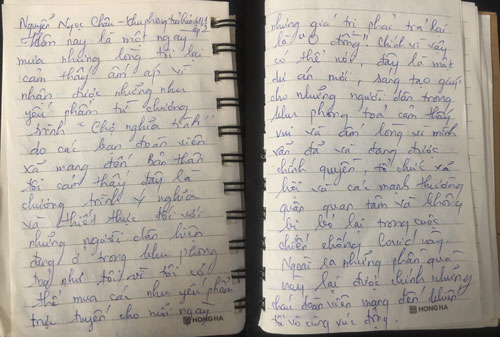 Nguyễn Ngọc Châu - Khu phong tỏa
Hôm nay là một ngày
mưa nhưng lòng tôi lại
cảm thấy ấm áp vì
nhận được những nhu
yếu phẩm từ chương
trình "Chợ nghĩa tình"
do các bạn đoàn viên
xã mang đến. Bản thân
tôi cảm thấy đây là
chương trình ý nghĩa
và thiết thực đối với
những người dân hiện
đang ở trong khu phong
tỏa như tôi vì tôi có
thể mua các nhu yếu phẩm
trực tuyến cho mỗi ngày
HONG HA
nhưng giá trị phải trả lại
là "0 đồng". Chính vì vậy
có thể nói, đây là một
dự án mới, sáng tạo giúp
cho những người dân trong
khu phong tỏa cảm thấy
vui và ấm lòng vì mình
vẫn đã và đang được
chính quyền, tổ chức xã
hội và các mạnh thường
quân quan tâm và không
bị bỏ lại trong cuộc
chiến chống Covid này.
Ngoài ra những phần quà
này lại được chính những
cháu đoàn viên mang đến khiến
tôi vô cùng xúc động.
HONG HA